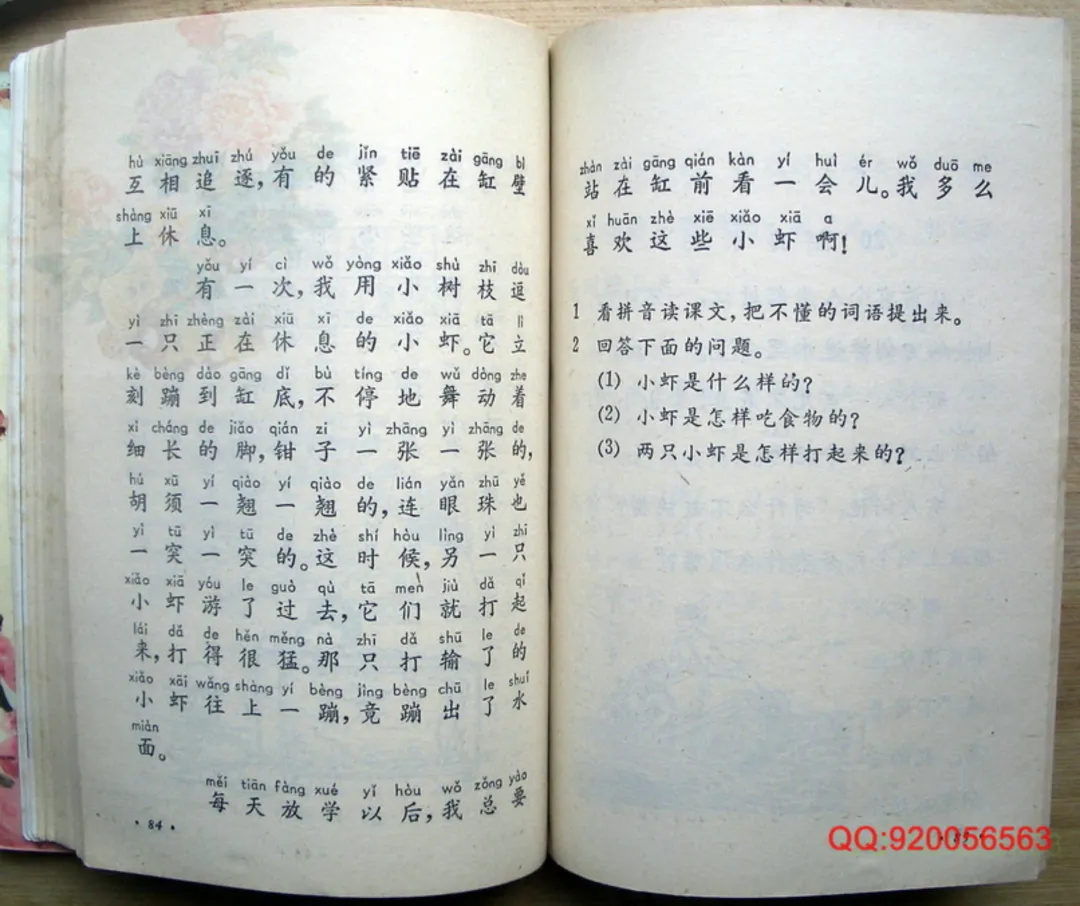 hú xiāng zhuī zhú yǒu de jǐn tiē zài gāng bì
互相追逐,有的紧贴在缸壁
shàng xiū xī
上休息。
yǒu yí cì wǒ yòng xiǎo shù zhī dòu
有一次,我用小树枝逗
yì zhī zhèng zài xiū xī de xiǎo xiā tā lì
一只正在休息的小虾。它立
kè bèng dào gāng dǐ bù tíng de wǔ dòng zhe
刻蹦到缸底,不停地舞动着
xì cháng de jiǎo qián zi yì zhāng yì zhāng de
细长的脚,钳子一张一张的,
hú xū yí qiào yí qiào de lián yǎn zhū yě
胡须一翘一翘的,连眼珠也
yì tū yì tū de zhè shí hòu lìng yì zhī
一突一突的。这时候,另一只
xiǎo xiā yóu le guò qù tā men jiù dǎ qǐ
小虾游了过去,它们就打起
lái dǎ de hěn měng nà zhī dǎ shū le de
来,打得很猛。那只打输了的
xiǎo xāi wǎng shàng yí bèng jìng bèng chū le shuǐ
小虾往上一蹦,竟蹦出了水
miàn
面。
měi tiān fàng xué yǐ hòu wǒ zǒng yào
每天放学以后,我总要
·84·
zhàn zài gāng qián kàn yí huì ér wǒ duō me
站在缸前看一会儿。我多么
xǐ huān zhè xiē xiǎo xiā a
喜欢这些小虾啊!
1 看拼音读课文,把不懂的词语提出来。
2 回答下面的问题。
(1) 小虾是什么样的?
(2) 小虾是怎样吃食物的?
(3) 两只小虾是怎样打起来的?
QQ:920056563